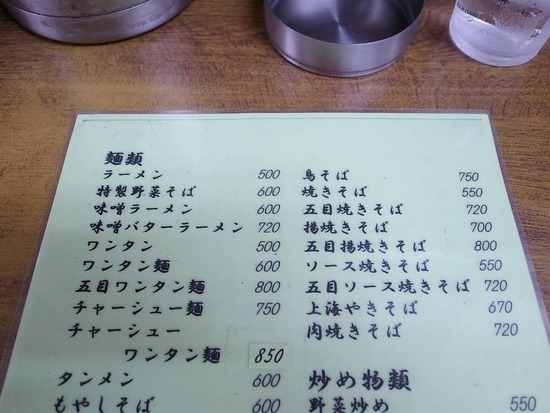 麺類
ラーメン 500
特製野菜そば 600
味噌ラーメン 600
味噌バターラーメン 720
ワンタン 500
ワンタン麺 600
五目ワンタン麺 800
チャーシュー麺 750
チャーシュー
ワンタン麺 850
タンメン 600
もやしそば 600
鳥そば 750
焼きそば 550
五目焼きそば 720
揚焼きそば 700
五目揚焼きそば 800
ソース焼きそば 550
五目ソース焼きそば 720
上海やきそば 670
肉焼きそば 720
炒め物類
野菜炒め 550